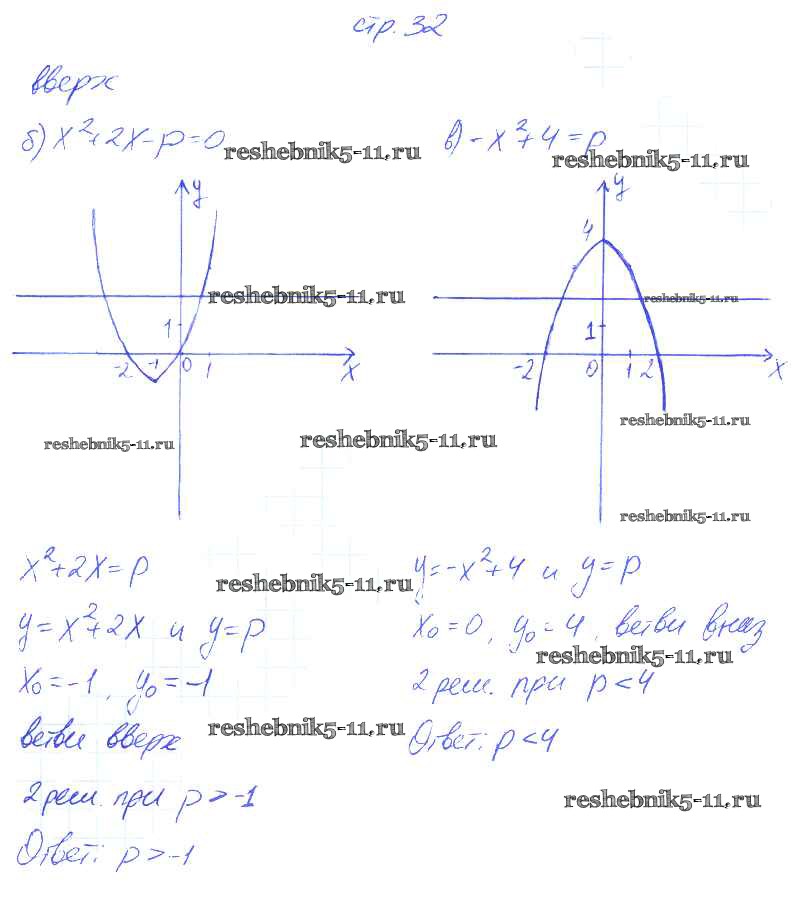 стр. 32
вверх
б) x²+2x-p=0
reshebnik5-11.ru
y
reshebnik5-11.ru
1
-2 -1 0 1 x
reshebnik5-11.ru
reshebnik5-11.ru
x²+2x=p
reshebnik5-11.ru
y=x²+2x и y=p
x₀=-1, y₀=-1
ветви вверх
reshebnik5-11.ru
2 реш. при p>-1
Ответ: p>-1
в) -x²+4=p
reshebnik5-11.ru
y
4
reshebnik5-11.ru
1
-2 0 1 2 x
reshebnik5-11.ru
reshebnik5-11.ru
y=-x²+4 и y=p
x₀=0, y₀=4, ветви вниз
reshebnik5-11.ru
2 реш. при p<4
Ответ: p<4
reshebnik5-11.ru